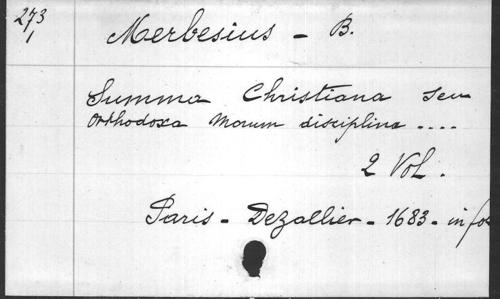 273
1
Merbesius - B.
Summa Christiana seu
Orthodoxa Morum disciplina ....
2 Vol.
Paris - Dezallier - 1683 - in fo